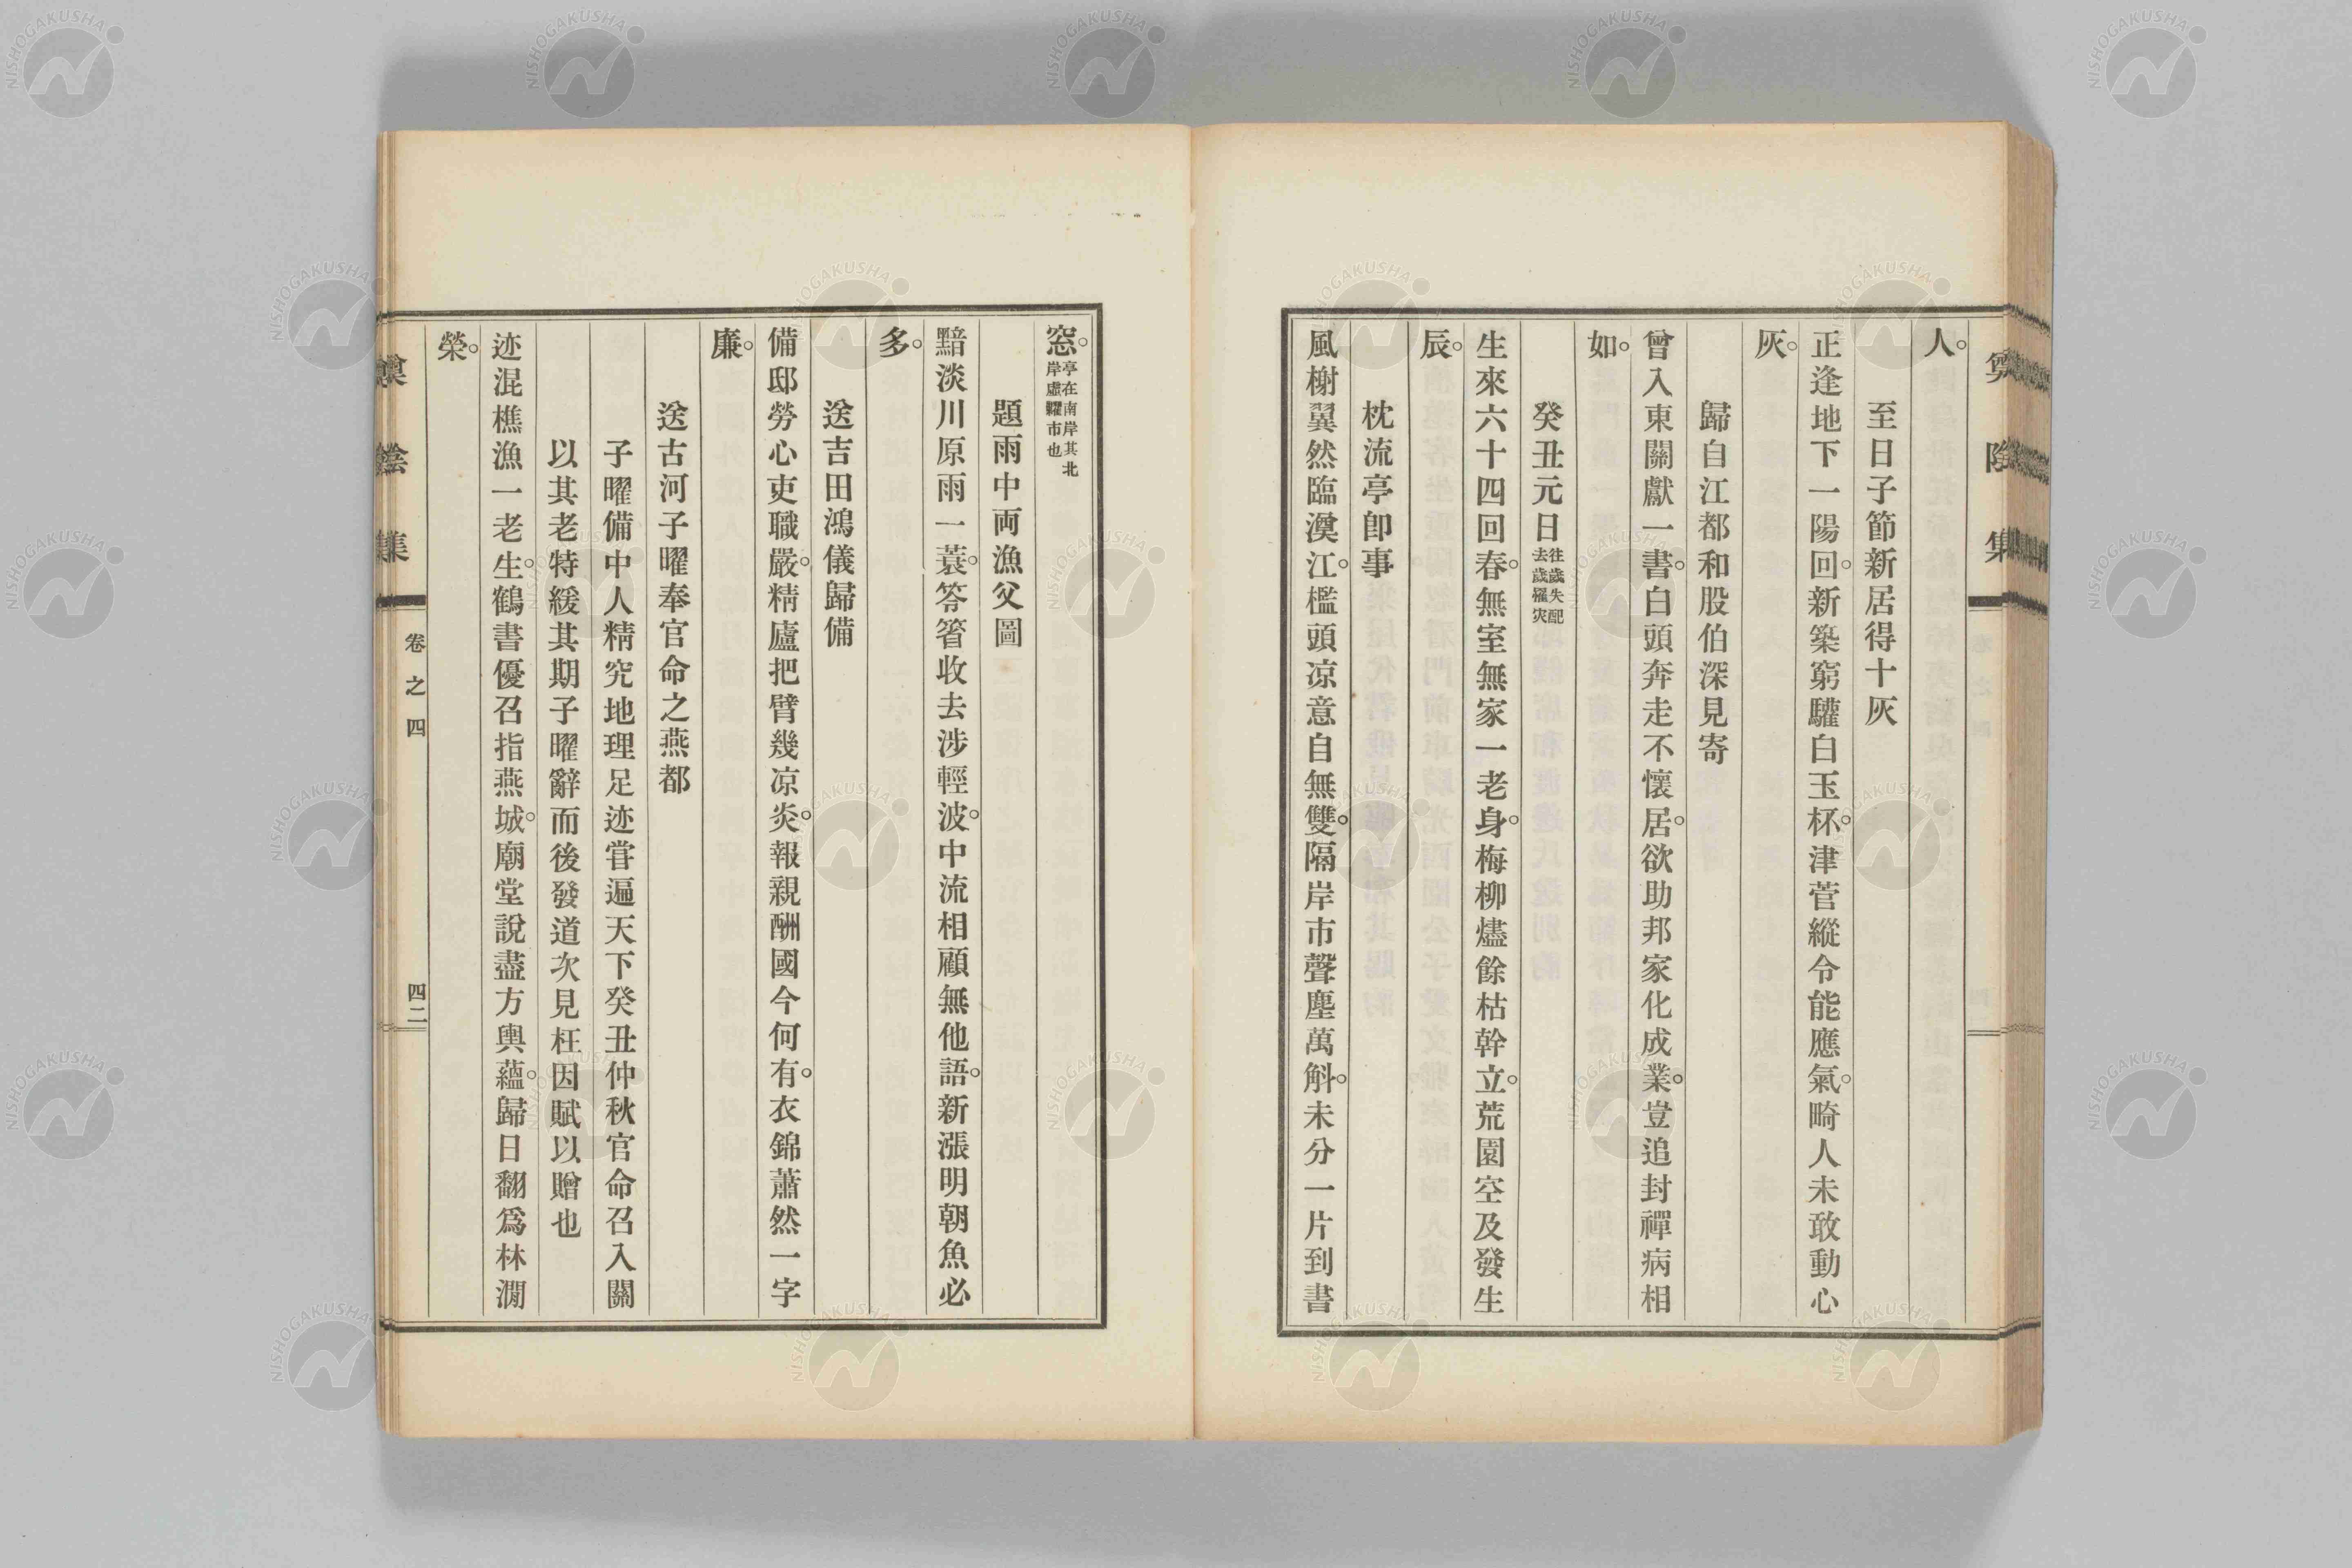 人。
至日子節新居得十灰
正逢地下一陽回。新築窮驩白玉杯。津菅縱令能應氣。畸人未敢動心
灰。
歸自江都和股伯深見寄
曾入東關獻一書。白頭奔走不懷居。欲助邦家化成業。豈追封禪病相
如。
癸丑元日 往歲失配去歲罹灾
生來六十四回春。無室無家一老身。梅柳燼餘枯幹立。荒園空及發生
辰。
枕流亭卽事
風榭翼然臨澳江。檻頭凉意自無雙。隔岸市聲塵萬斛。未分一片到書
窓。亭在南岸其北岸虛糶市也
題雨中両漁父圖
黯淡川原雨一蓑。笭箵收去涉輕波。中流相顧無他語。新漲明朝魚必
多。
送吉田鴻儀歸備
備邸勞心吏職嚴。精廬把臂幾凉炎。報親酬國今何有。衣錦蕭然一字
廉。
送古河子曜奉官命之燕都
子曜備中人精究地理足迹甞遍天下癸丑仲秋官命召入關
以其老特緩其期子曜辭而後發道次見枉因賦以贈也
迹混樵漁一老生。鶴書優召指燕城。廟堂說盡方輿蘊。歸日翻爲林澗
榮。
卷之四
四二